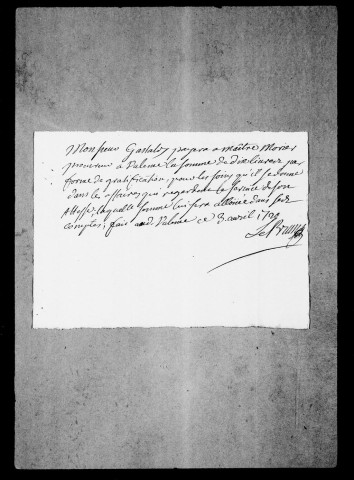 Monsieur Gastaldy payera a maitre Mores
procureur à Valence la somme de dix livres par
forme de gratification, pour les soins qu'il se donne
dans les affaires qui regardent le service de son
Altesse, laquelle somme lui sera allouée dans ses
comptes; fait aud. Valence ce 3 avril
Le Brun